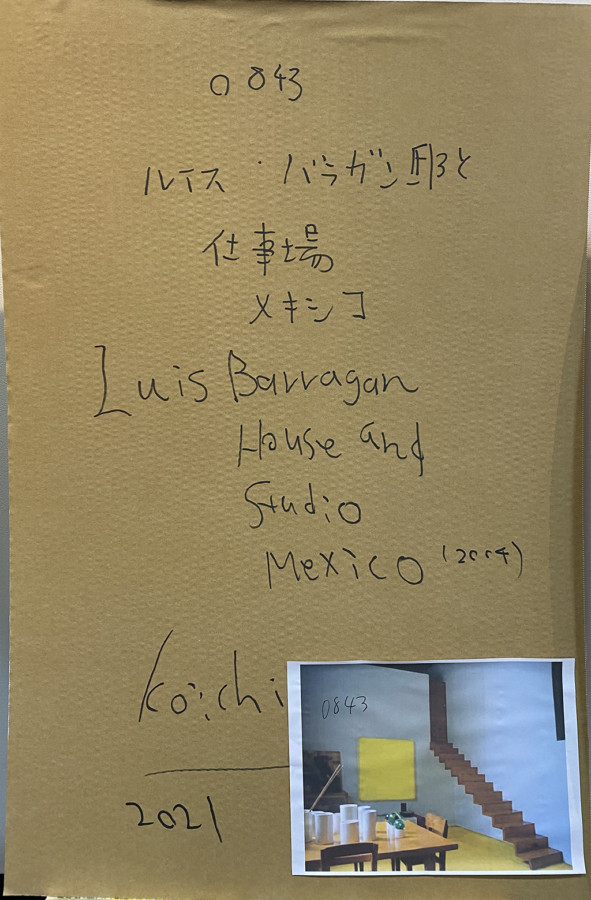 0843
ルイス・バラガン邸と
仕事場
メキシコ
Luis Barragan
House and
Studio
Mexico (2004)
Koichi
2021
0843